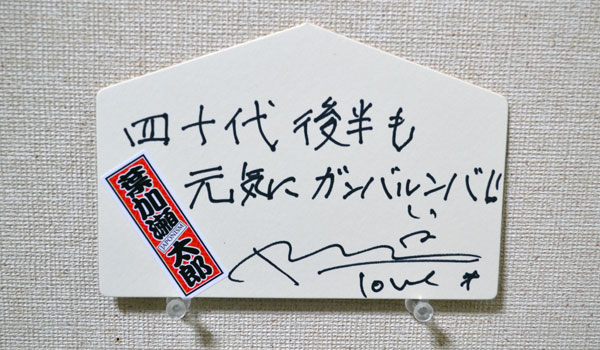 四十代後半も
元気にガンバルンバ!!
葉加瀬太郎
JAPONISM
love